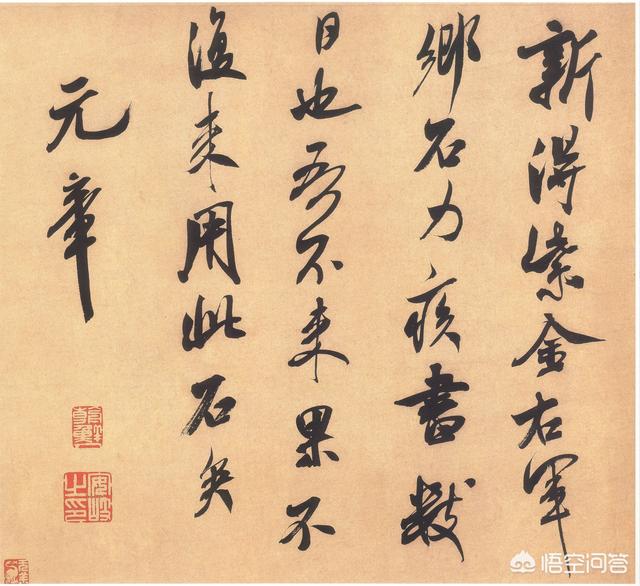 新得紫金右軍
鄉石力疾書數
日也吾不來果不
復來用此石矣
元章
安岐之印
悟空问答